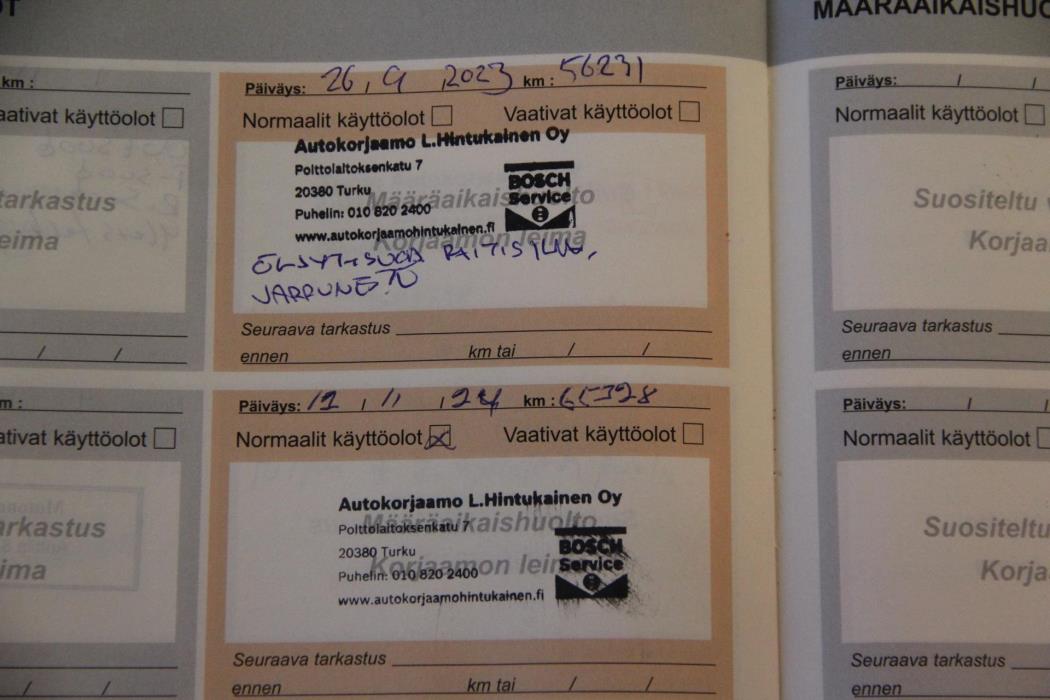 MÄÄRÄAIKAISHUO
km :
Vaativat käyttöolot
tarkastus
eima
/ /
Päiväys: 26 , 9 , 2023 km : 56231
Normaalit käyttöolot Vaativat käyttöolot
Määräaikaishuolto
Korjaamon leima
Autokorjaamo L.Hintukainen Oy
Polttolaitoksenkatu 7
20380 Turku
Puhelin: 010 820 2400
www.autokorjaamohintukainen.fi
BOSCH
Service
ÖLJYT+SUOD RAITISILMA,
JARRUNESTE
Seuraava tarkastus
ennen km tai / /
m :
ativat käyttöolot
arkastus
ima
/ /
Päiväys: 12 / 11 , 24 km : 65328
Normaalit käyttöolot Vaativat käyttöolot
Määräaikaishuolto
Korjaamon leim
Autokorjaamo L.Hintukainen Oy
Polttolaitoksenkatu 7
20380 Turku
Puhelin: 010 820 2400
www.autokorjaamohintukainen.fi
BOSCH
Service
Seuraava tarkastus
ennen km tai / /
Päiväys: / /
Normaalit käyttöolot
Suositeltu
Korjaa
Seuraava tarkastus
ennen
Päiväys: / /
Normaalit käyttöolot
Suositeltu
Korja
Seuraava tarkastus
ennen